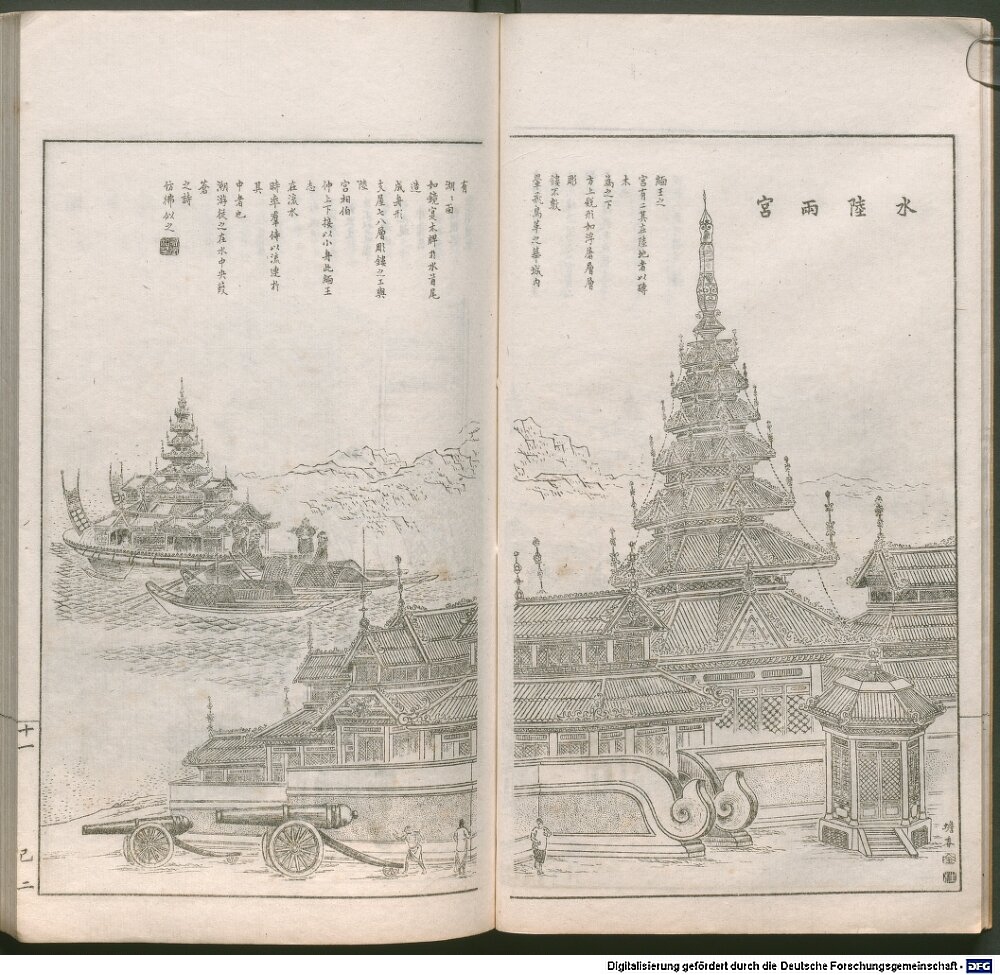 水陸兩宮
緬王之
宮有二其在陸地者以磚
木
為之下
方上銳形如浮屠層層
彫
鏤不數
翬飛鳥革之華城內
有
湖一面
如鏡寬木牌引水首尾
造
成身形
支屋七八層彫鏤之工與
陸
宮相伯
仲上下接以小舟此緬王
忘
在流水
時率羣侍以流連於
其
中者也
溯游從之在水中央葭
蒼
之詩
彷彿似之
蟾香
十一
己二
Digitalisierung gefördert durch die Deutsche Forschungsgemeinschaft - DFG